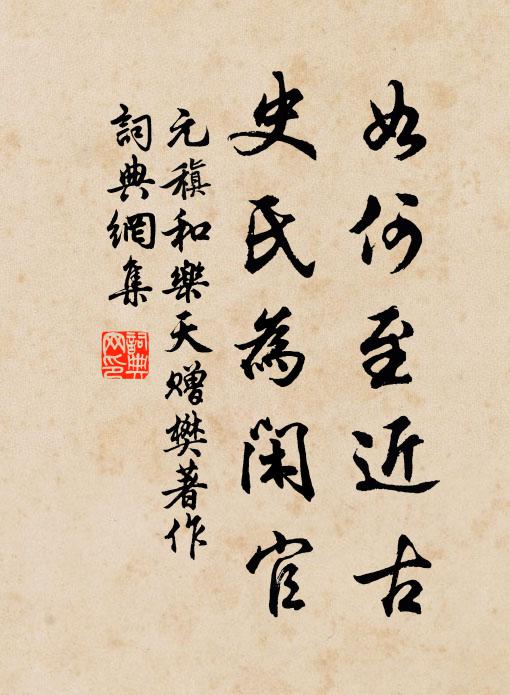 如何至近古
史氏為閑官
元稹和樂天贈樊著作
詞典網集
詞典網印